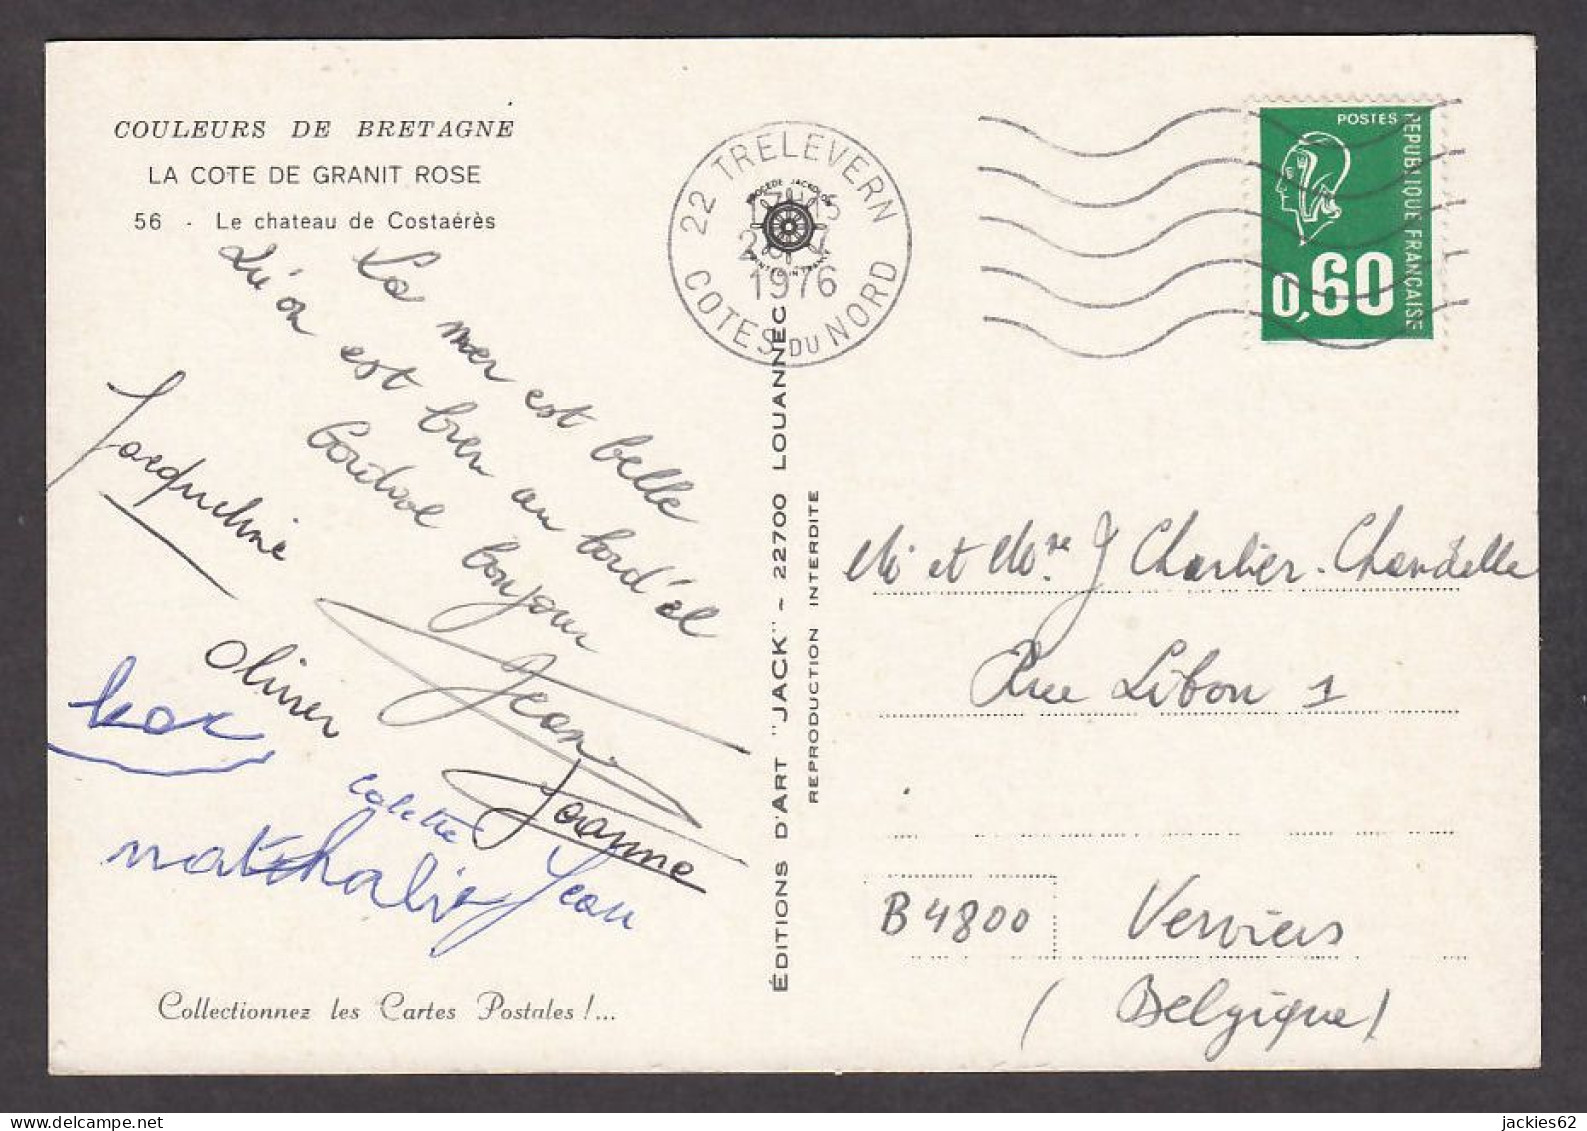 COULEURS DE BRETAGNE
LA COTE DE GRANIT ROSE
56 - Le chateau de Costaérès
La mer est belle
Qu'on est bien au bord'el
bonjour
Jean.
Jacqueline
Olivier
Colette
Joanne
nathalie
Jean
Collectionnez les Cartes Postales !...
ÉDITIONS D'ART "JACK" - 22700 LOUANNEC
REPRODUCTION INTERDITE
22 TRELEVERN
1976
COTES DU NORD
PROCÉDÉ JACKOLOR
PRINTED IN FRANCE
POSTES
REPUBLIQUE FRANÇAISE
0,60
Mr et Mme J Charlier-Chandelle
Rue Libon 1
B 4800 Verviers
(Belgique)
jackies62